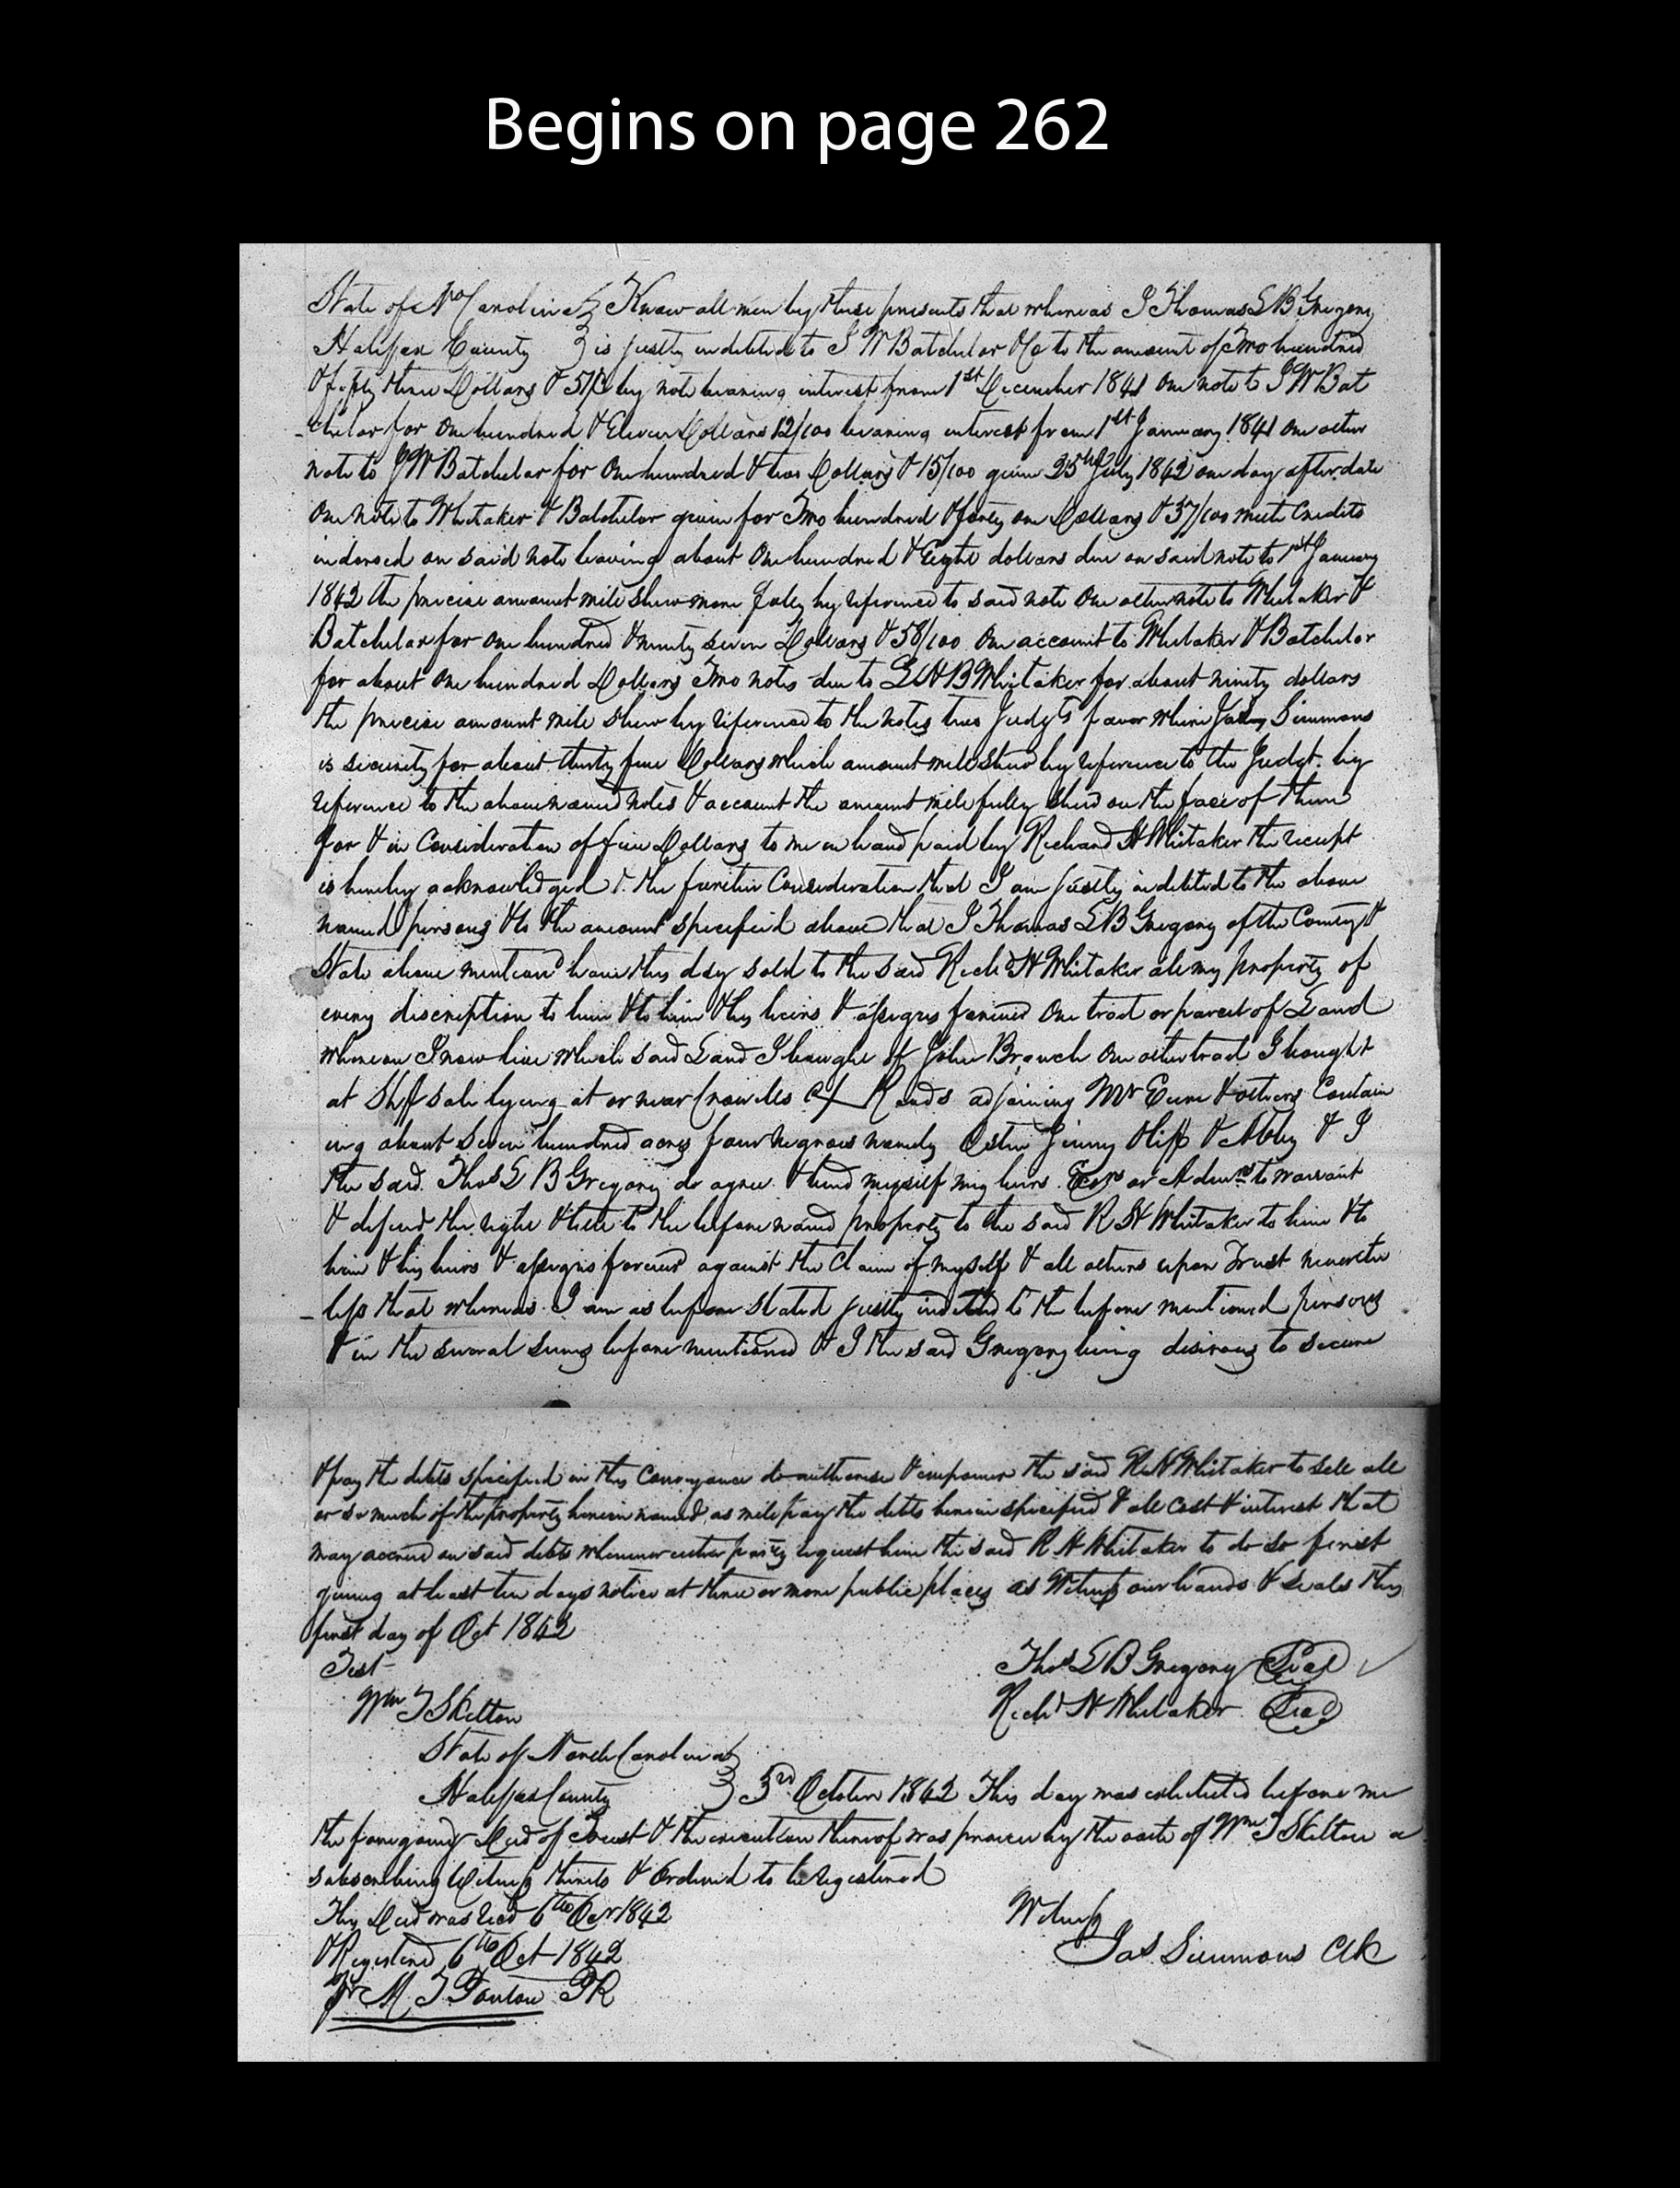 Begins on page 262
State of No Carolina } Know all men by these presents that whereas I Thomas L B Gregory
Halifax County } is justly indebted to J W Batchelor & Co to the amount of Two hundred
& fifty three Dollars & by note bearing interest from 1st December 1841 One note to J W Bat
chelor for One hundred & Eleven Dollars 12/100 bearing interest from 1st January 1841 One other
note to J W Batchelor for One hundred & two Dollars & 15/100 given 25th July 1842 one day after date
One note to Whitaker & Batchelor given for Two hundred & forty one Dollars & 37/100 with Credits
indorsed on said note leaving about One hundred & Eight dollars due on said note to 1st January
1842 the precise amount will show more fuly by reference to said note One other note to Whitaker &
Batchelor for One hundred & ninety seven Dollars & 58/100 One account to Whitaker & Batchelor
for about One hundred Dollars Two notes due to L H B Whitaker for about ninety dollars
the precise amount will show by reference to the notes two Judgts favor where Simmons
is security for about thirty five Dollars which amount will show by reference to the Judgt. by
reference to the above named notes & account the amount will fuley show on the face of them
for & in Consideration of five Dollars to me in hand paid by Richard H Whitaker the receipt
is hereby acknowledged & the further Consideration that I am justly indebted to the above
named persons & to the amount specified above that I Thomas L B Gregory of the County &
State above mentiond have this day sold to the said Richd H Whitaker all my property of
every discription to him & to him & his heirs & assigns forever One tract or parcel of Land
whereon I now live which said Land I bought of John Branch One other tract I bought
at Shff sale lying at or near Roads adjoining Mr & others Contain
ing about Seven hundred acres four negroes namely Ginny & Abby & I
the said Thos L B Gregory do agree & bind myself my heirs Exors or Admrs to warrant
& defend the right & title to the before named property to the said R H Whitaker to him & to
him & his heirs & assigns forever against the Claim of myself & all others upon Trust neverthe
less that whereas I am as before stated justly indebted to the before mentioned persons
& in the several sums before mentioned & I the said Gregory being desirous to secure
& pay the debts specified in this Conveyance do authorise & empower the said R H Whitaker to sell all
or so much of the property herein named as will pay the debts herein specified & all Cost & interest that
may accrue on said debts whenever either party request him the said R H Whitaker to do so first
giving at least ten days notice at three or more public places as Witness our hands & seals this
first day of Oct 1842
Test Thos L B Gregory Seal
Wm J Skelton Richd H Whitaker Seal
State of North Carolina }
Halifax County } 3rd October 1842 This day was exhibited before me
the foregoing Deed of Trust & the execution thereof was proven by the oath of Wm J Skelton a
subscribing Witness thereto & Ordered to be registered
This Deed was recd 6th Oct 1842 Witness
& Registered 6th Oct 1842 Jas Simmons Clk
M. T Ponton PR